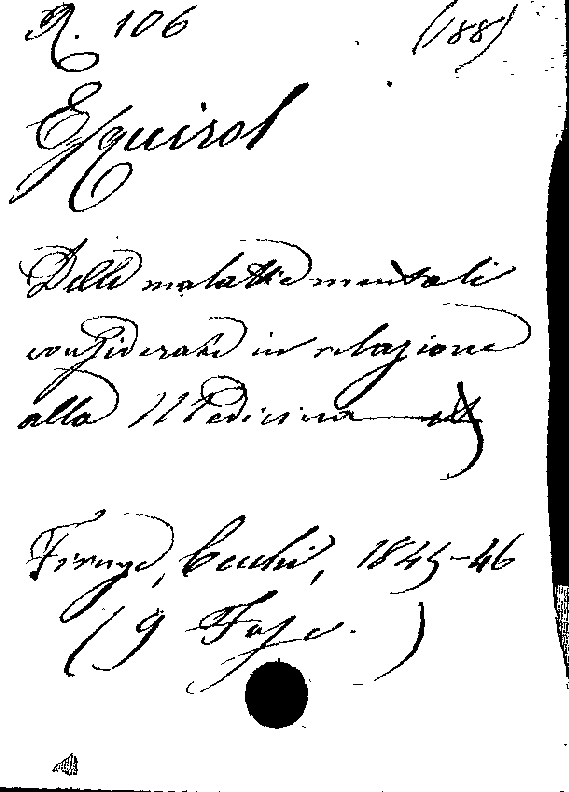 R. 106 (188)
Esquirol
Delle malattie mentali
considerate in relazione
alla Medicina
Firenze, Cecchi, 1845-46
(9 Fasc.)